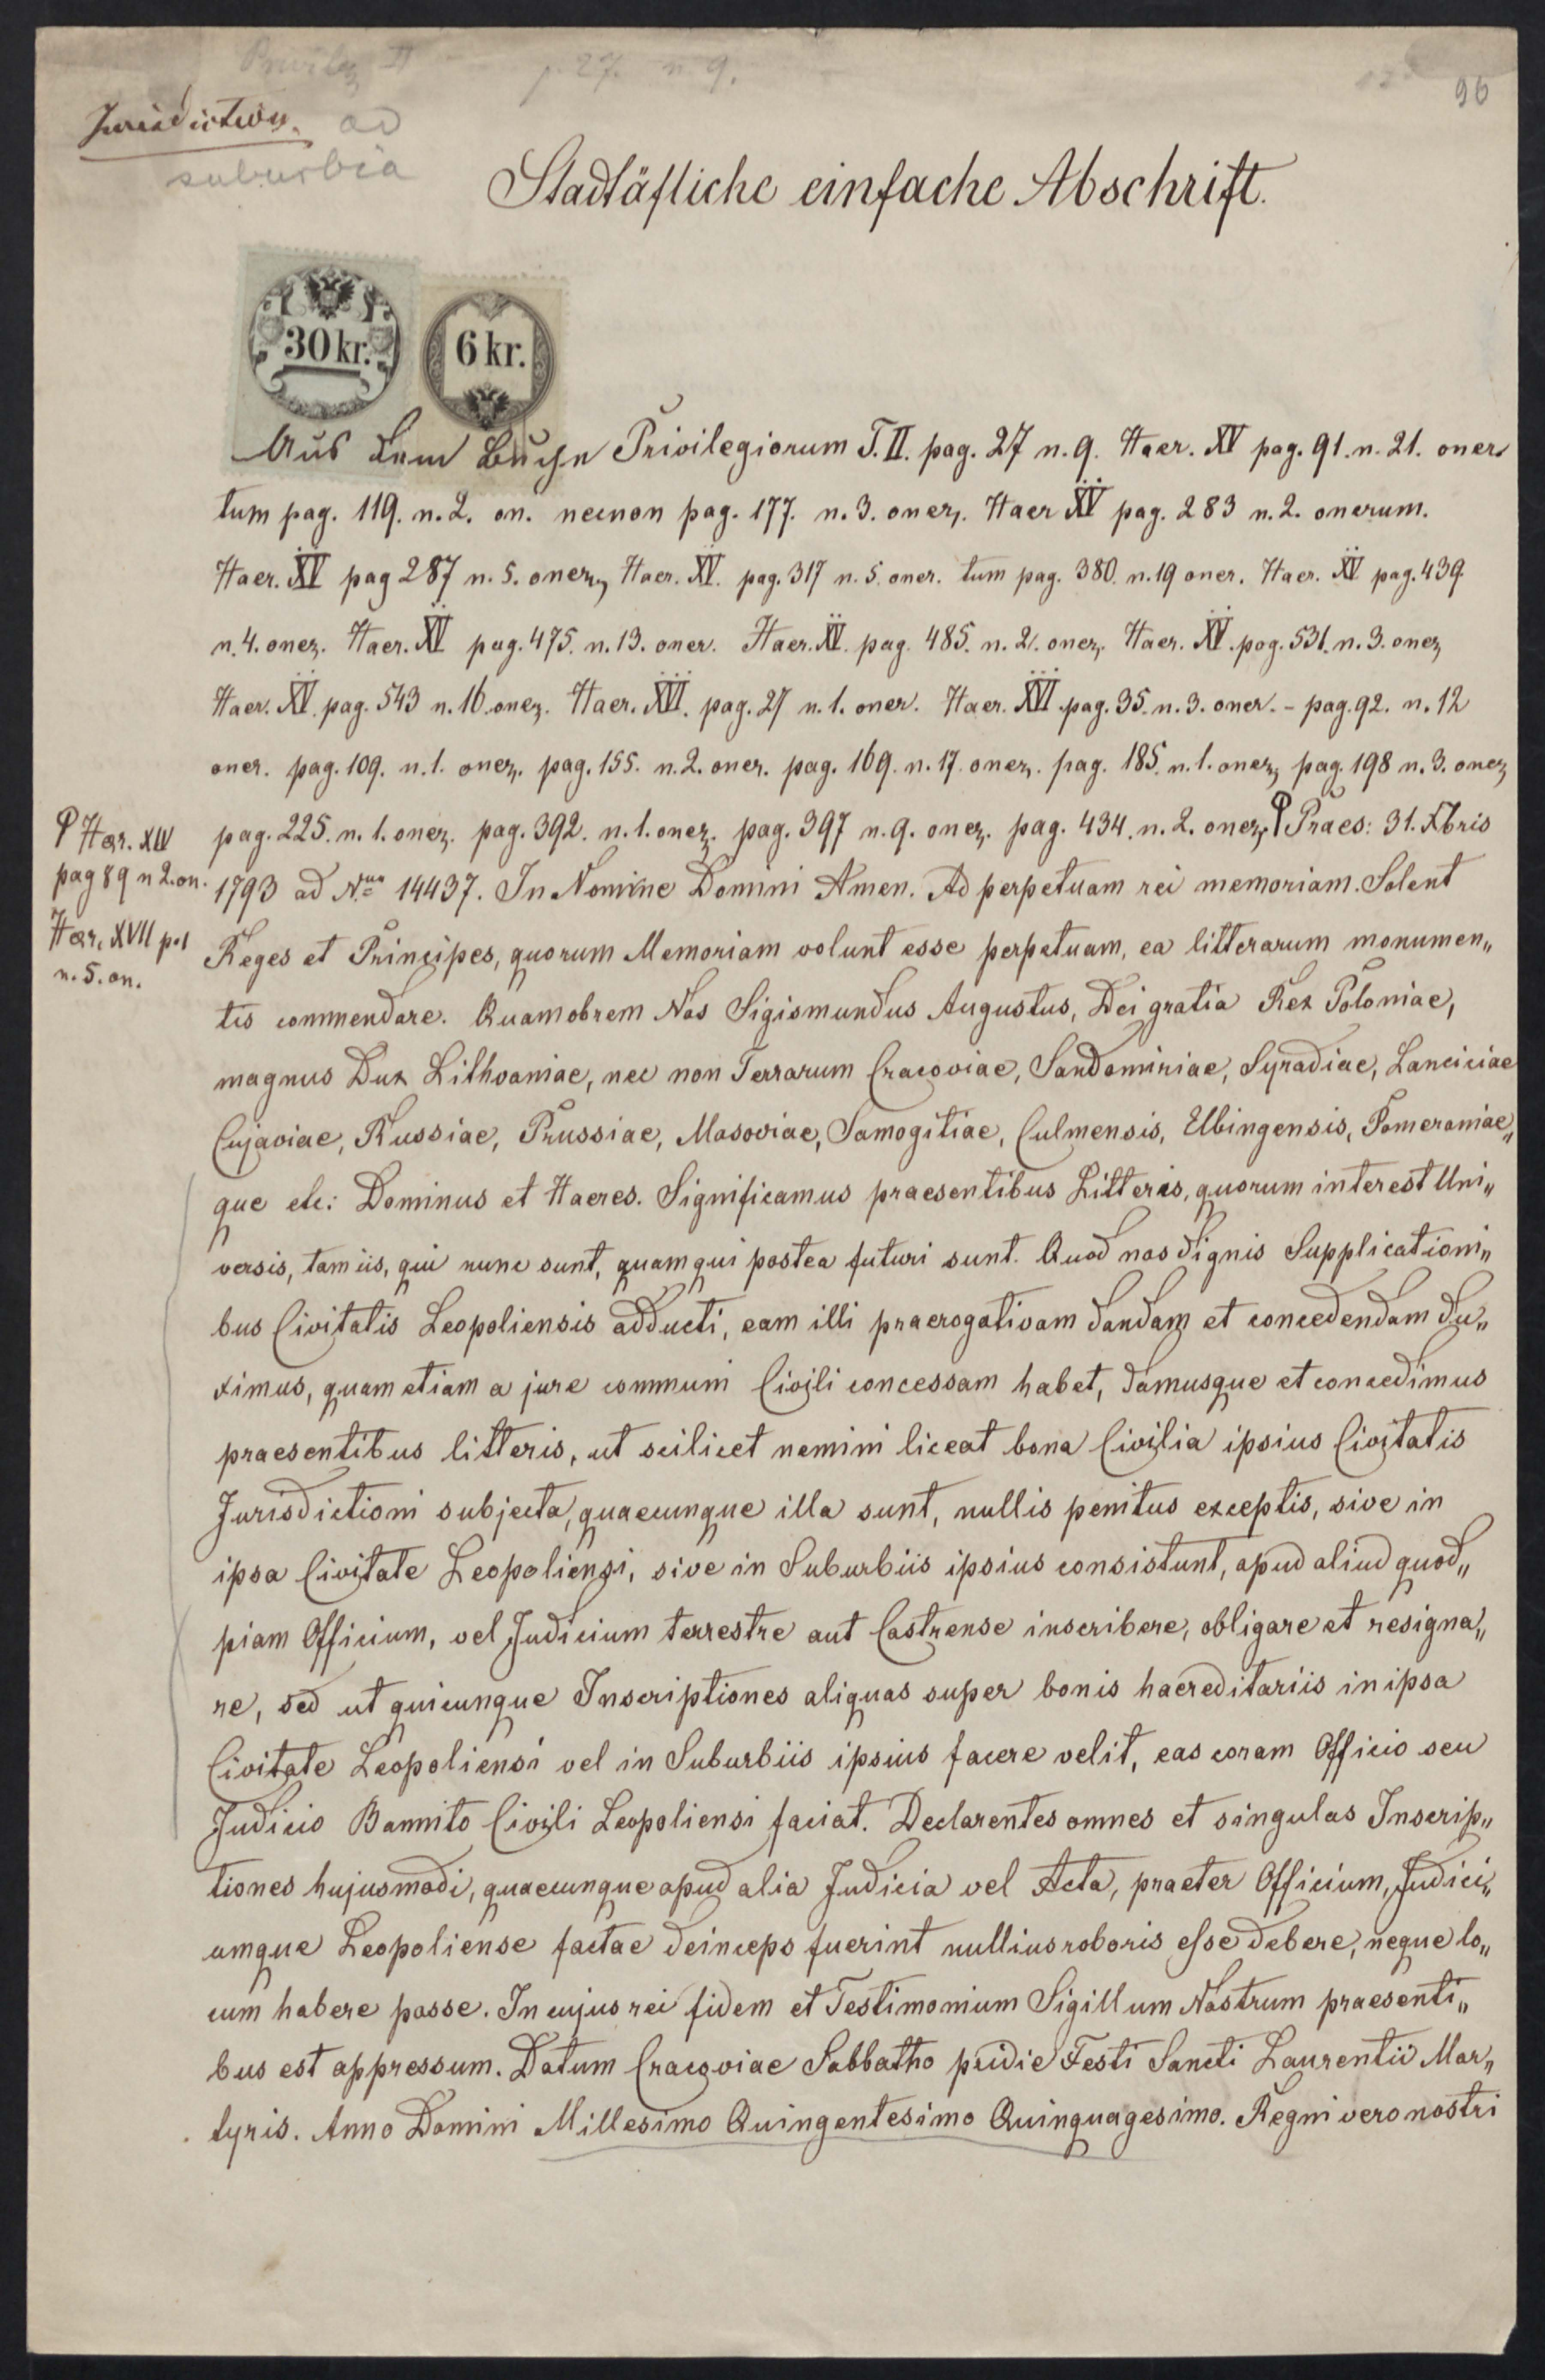 Privileg II p. 27. n. 9.
96
Jurisdiction. ad
suburbia
Stadtäfliche einfache Abschrift.
30 kr. 6 kr.
Aus dem Buche Privilegiorum T. II. pag. 27 n. 9. Haer. XV pag. 91. n. 21. oner.
tum pag. 119. n. 2. on. necnon pag. 177. n. 3. oner. Haer XV pag. 283 n. 2. onerum.
Haer. XV pag 287 n. 5. oner, Haer. XV. pag. 317 n. 5. oner. tum pag. 380. n. 19 oner. Haer. XV pag. 439
n. 4. oner. Haer. XV pag. 475. n. 13. oner. Haer. XV. pag. 485. n. 21. oner, Haer. XV. pag. 531. n. 3. oner,
Haer. XV. pag. 543 n. 16 oner. Haer. XVI. pag. 27 n. 1. oner. Haer. XVI pag. 35. n. 3. oner. - pag. 92. n. 12
oner. pag. 109. n. 1. oner, pag. 155. n. 2. oner. pag. 169. n. 17. oner, pag. 185. n. 1. oner, pag. 198 n. 3. oner,
pag. 225. n. 1. oner. pag. 392. n. 1. oner. pag. 397 n. 9. oner. pag. 434. n. 2. oner, Praes: 31. Xbris
Haer. XIV
pag 89 n 2. on.
Haer. XVII p. 1
n. 5. on.
1793 ad Num 14437. In Nomine Domini Amen. Ad perpetuam rei memoriam. Solent
Reges et Principes, quorum Memoriam volunt esse perpetuam, ea litterarum monumen„
tis commendare. Quamobrem Nos Sigismundus Augustus, Dei gratia Rex Poloniae,
magnus Dux Lithvaniae, nec non Terrarum Cracoviae, Sandomiriae, Syradiae, Lanciciae
Cujaviae, Russiae, Prussiae, Masoviae, Samogitiae, Culmensis, Elbingensis, Pomeraniae„
que etc: Dominus et Haeres. Significamus praesentibus Litteris, quorum interest Uni„
versis, tam iis, qui nunc sunt, quam qui postea futuri sunt. Quod nos dignis Supplicationi„
bus Civitatis Leopoliensis adducti, eam illi praerogativam dandam et concedendam du„
ximus, quam etiam a jure communi Civili concessam habet, damusque et concedimus
praesentibus litteris, ut scilicet nemini liceat bona Civilia ipsius Civitatis
Jurisdictioni subjecta, quaecunque illa sunt, nullis penitus exceptis, sive in
ipsa Civitate Leopoliensi, sive in Suburbiis ipsius consistunt, apud aliud quod„
piam Officium, vel Judicium terrestre aut Castrense inscribere, obligare et resigna„
re, sed ut quicunque Inscriptiones aliquas super bonis haereditariis in ipsa
Civitate Leopoliensi vel in Suburbiis ipsius facere velit, eas coram Officio seu
Judicio Bannito Civili Leopoliensi faciat. Declarentes omnes et singulas Inscrip„
tiones hujusmodi, quaecunque apud alia Judicia vel Acta, praeter Officium, Judici„
umque Leopoliense factae deinceps fuerint nullius roboris esse debere, neque lo„
cum habere posse. In cujus rei fidem et Testimonium Sigillum Nostrum praesenti„
bus est appressum. Datum Cracoviae Sabbatho pridie Festi Sancti Laurentii Mar„
tyris. Anno Domini Millesimo Quingentesimo Quinquagesimo. Regni vero nostri